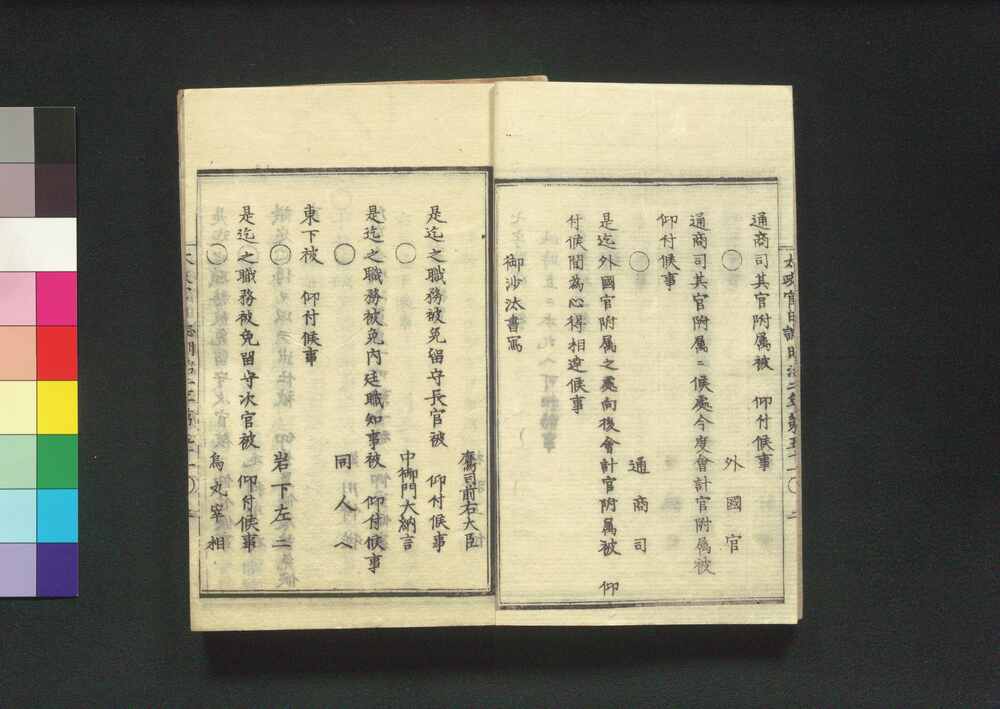 通商司其官附属被　仰付候事
○
外國官
通商司其官附属ニ候處今度會計官附属被
仰付候事
○
通商司
是迄外國官附属之處向後會計官附属被　仰
付候間為心得相達候事
御沙汰書寫
鷹司前右大臣
是迄之職務被免留守長官被　仰付候事
○
中御門大納言
是迄之職務被免内廷職知事被　仰付候事
○
同人へ
東下被　仰付候事
○
岩下左二
是迄之職務被免留守次官被　仰付候事
○
烏丸宰相